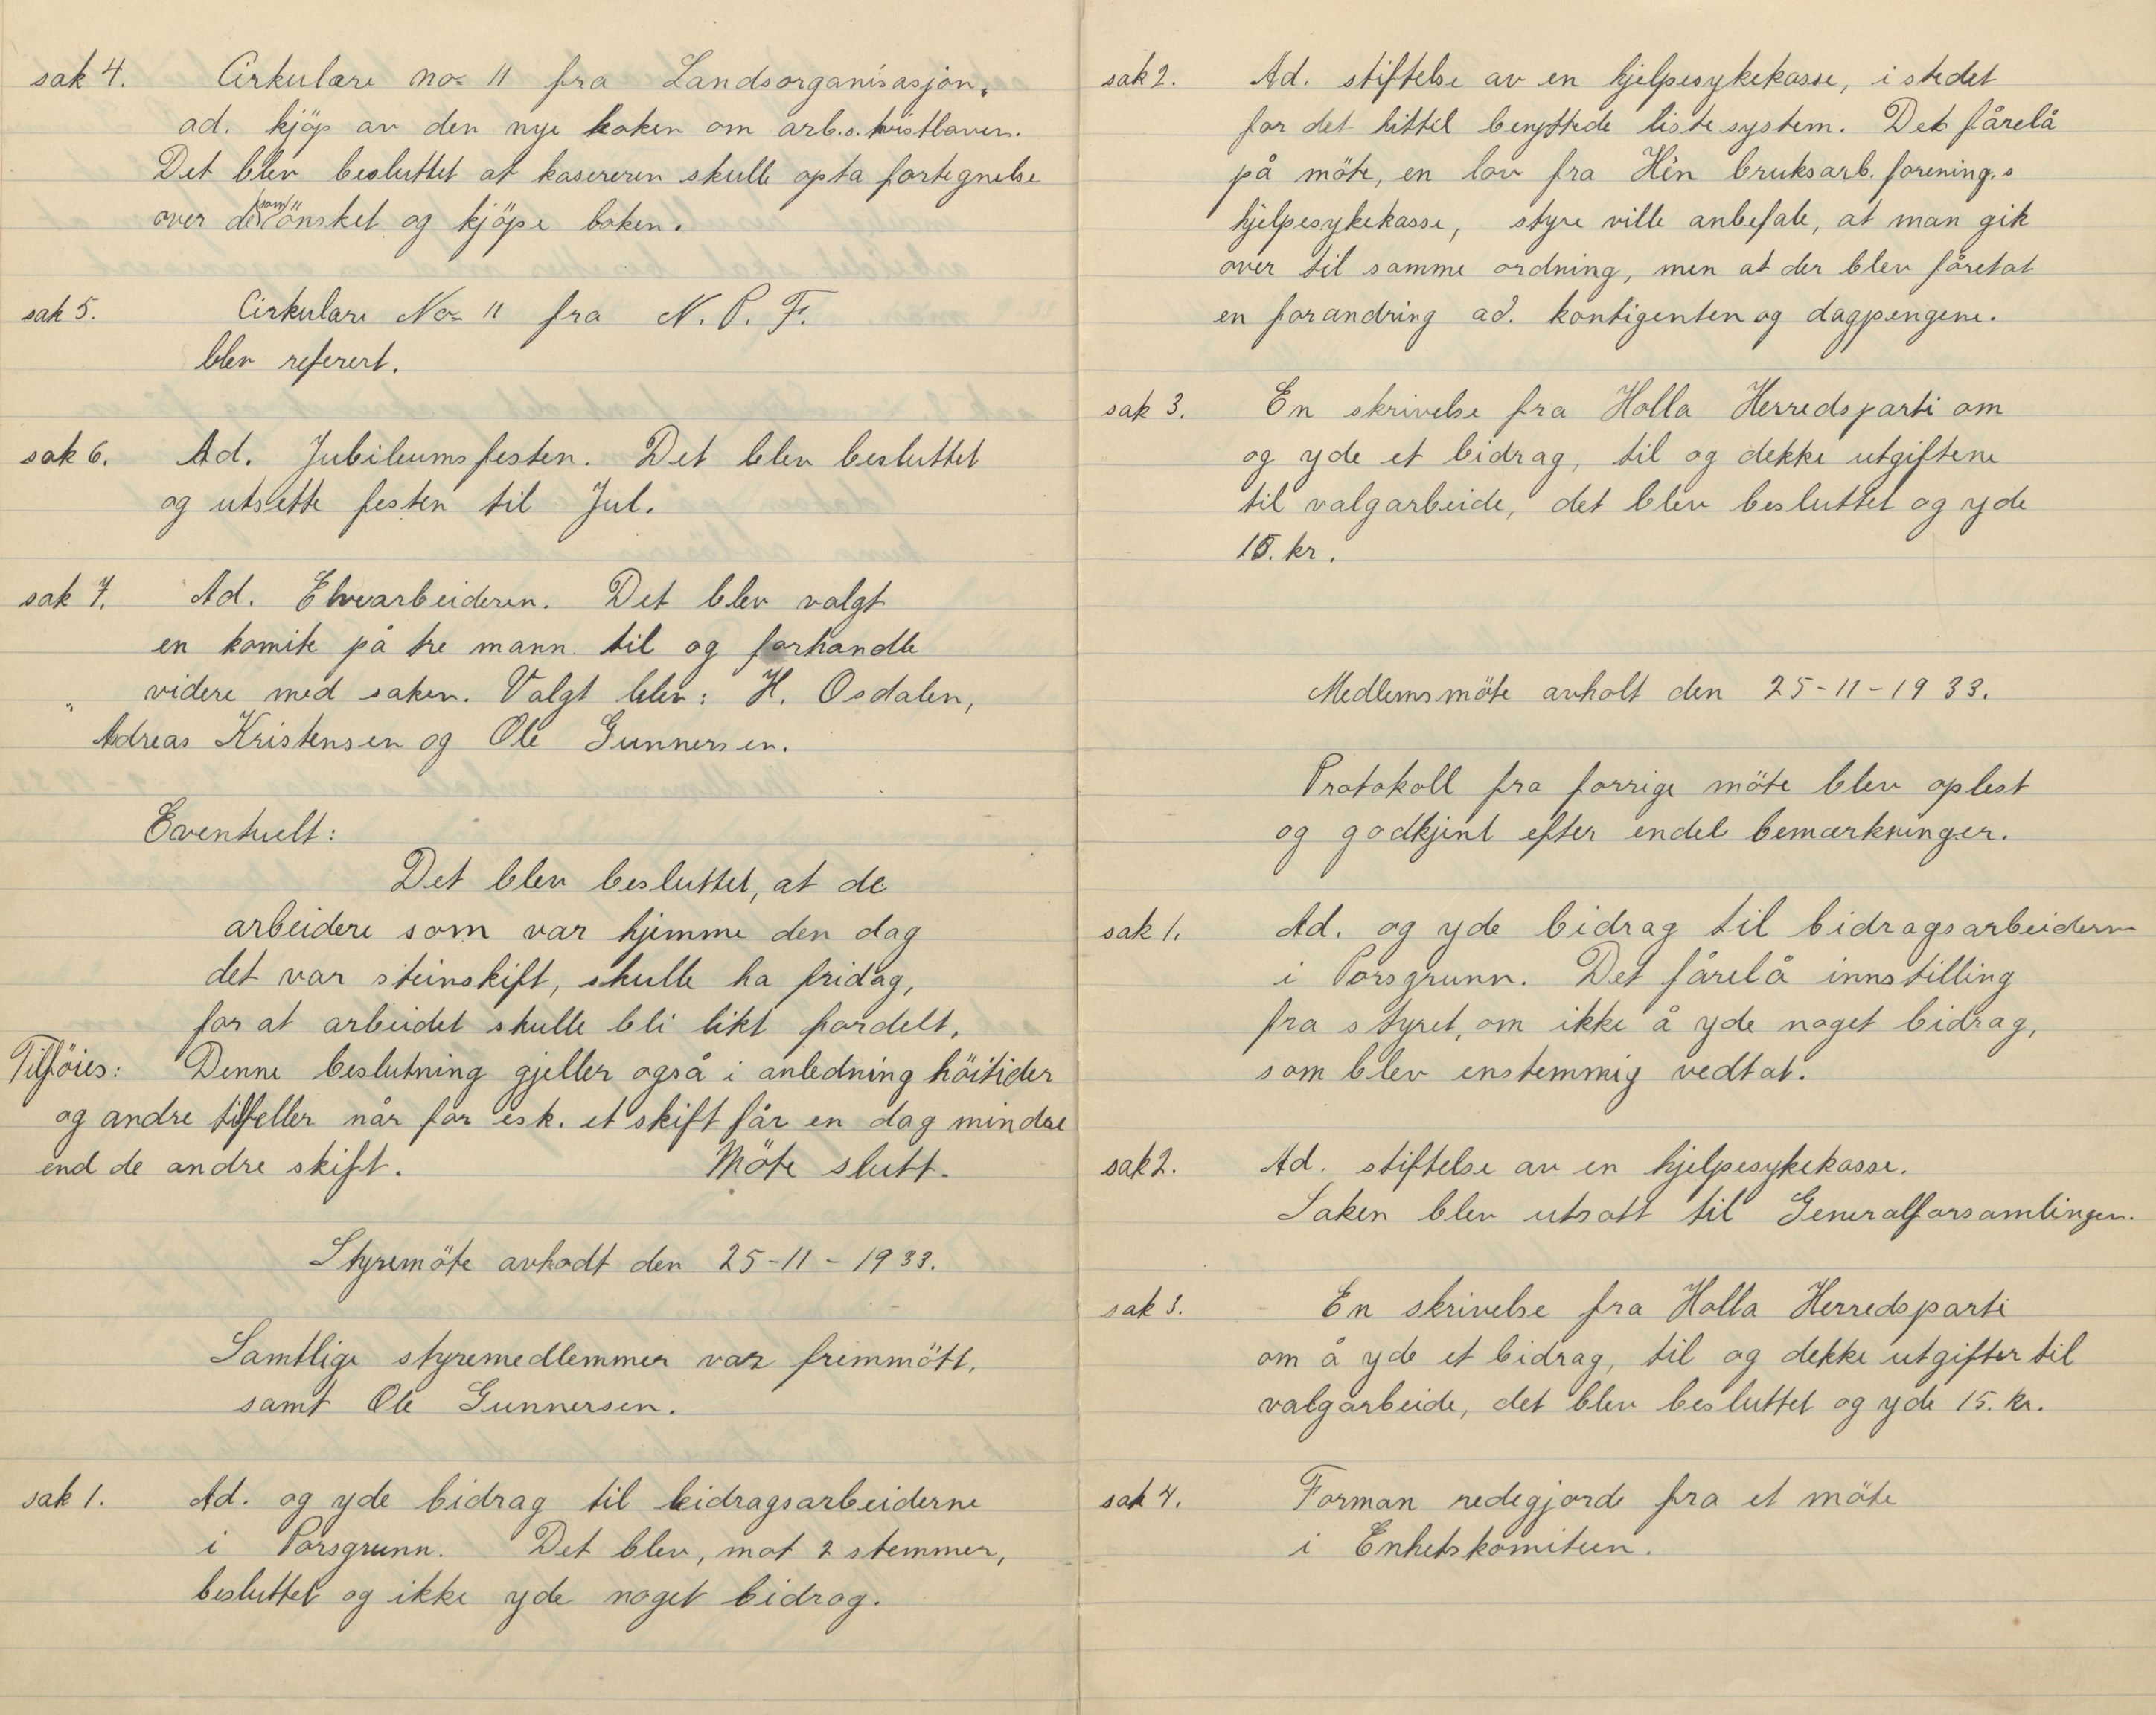 sak 4. Cirkulære no= 11 fra Landsorganisasjon.
ad. kjöp av den nye boken om arb.s. tvistloven.
Det blev besluttet at kasereren skulle opta fortegnelse
over de som önsket og kjöpe boken.
sak 5. Cirkulære No= 11 fra N. P. F.
blev referert.
sak 6. Ad. Jubileumsfesten. Det blev besluttet
og utsette festen til Jul.
sak 7. Ad. Elvearbeideren. Det blev valgt
en komite på tre mann til og forhandle
videre med saken. Valgt blev: H. Osdalen,
Adreas Kristensen og Ole Gunnersen.
Eventuelt:
Det blev besluttet, at de
arbeidere som var hjemme den dag
det var steinskift, skulle ha fridag,
for at arbeidet skulle bli likt fordelt.
Tilföies: Denne beslutning gjeller også i anledning höitider
og andre tilfeller når for esk. et skift får en dag mindre
end de andre skift. Möte slutt.
Styremöte avhodt den 25-11-1933.
Samtlige styremedlemmer var fremmött,
samt Ole Gunnersen.
sak 1. Ad. og yde bidrag til bidragsarbeiderne
i Porsgrunn. Det blev, mot 2 stemmer,
besluttet og ikke yde noget bidrag.
sak 2. Ad. stiftelse av en hjelpesykekasse, i stedet
for det hittil benyttede liste system. Det fårelå
på möte, en lov fra Hén bruksarb. forening.s
hjelpesykekasse, styre ville anbefale, at man gik
over til samme ordning, men at der blev fåretat
en forandring ad. kontigenten og dagpengene.
sak 3. En skrivelse fra Holla Herredsparti om
og yde et bidrag, til og dekke utgiftene
til valgarbeide, det blev besluttet og yde
15. kr.
Medlemsmöte avholt den 25-11-1933.
Protokoll fra forrige möte blev oplest
og godkjent efter endel bemærkninger.
sak 1. Ad. og yde bidrag til bidragsarbeiderne
i Porsgrunn. Det fårelå innstilling
fra styret, om ikke å yde noget bidrag,
som blev enstemmig vedtat.
sak 2. Ad. stiftelse av en hjelpesykekasse.
Saken blev utsatt til Generalforsamlingen.
sak 3. En skrivelse fra Holla Herredsparti
om å yde et bidrag, til og dekke utgifter til
valgarbeide, det blev besluttet og yde 15. kr.
sak 4. Forman redegjorde fra et möte
i Enhetskomiteen.